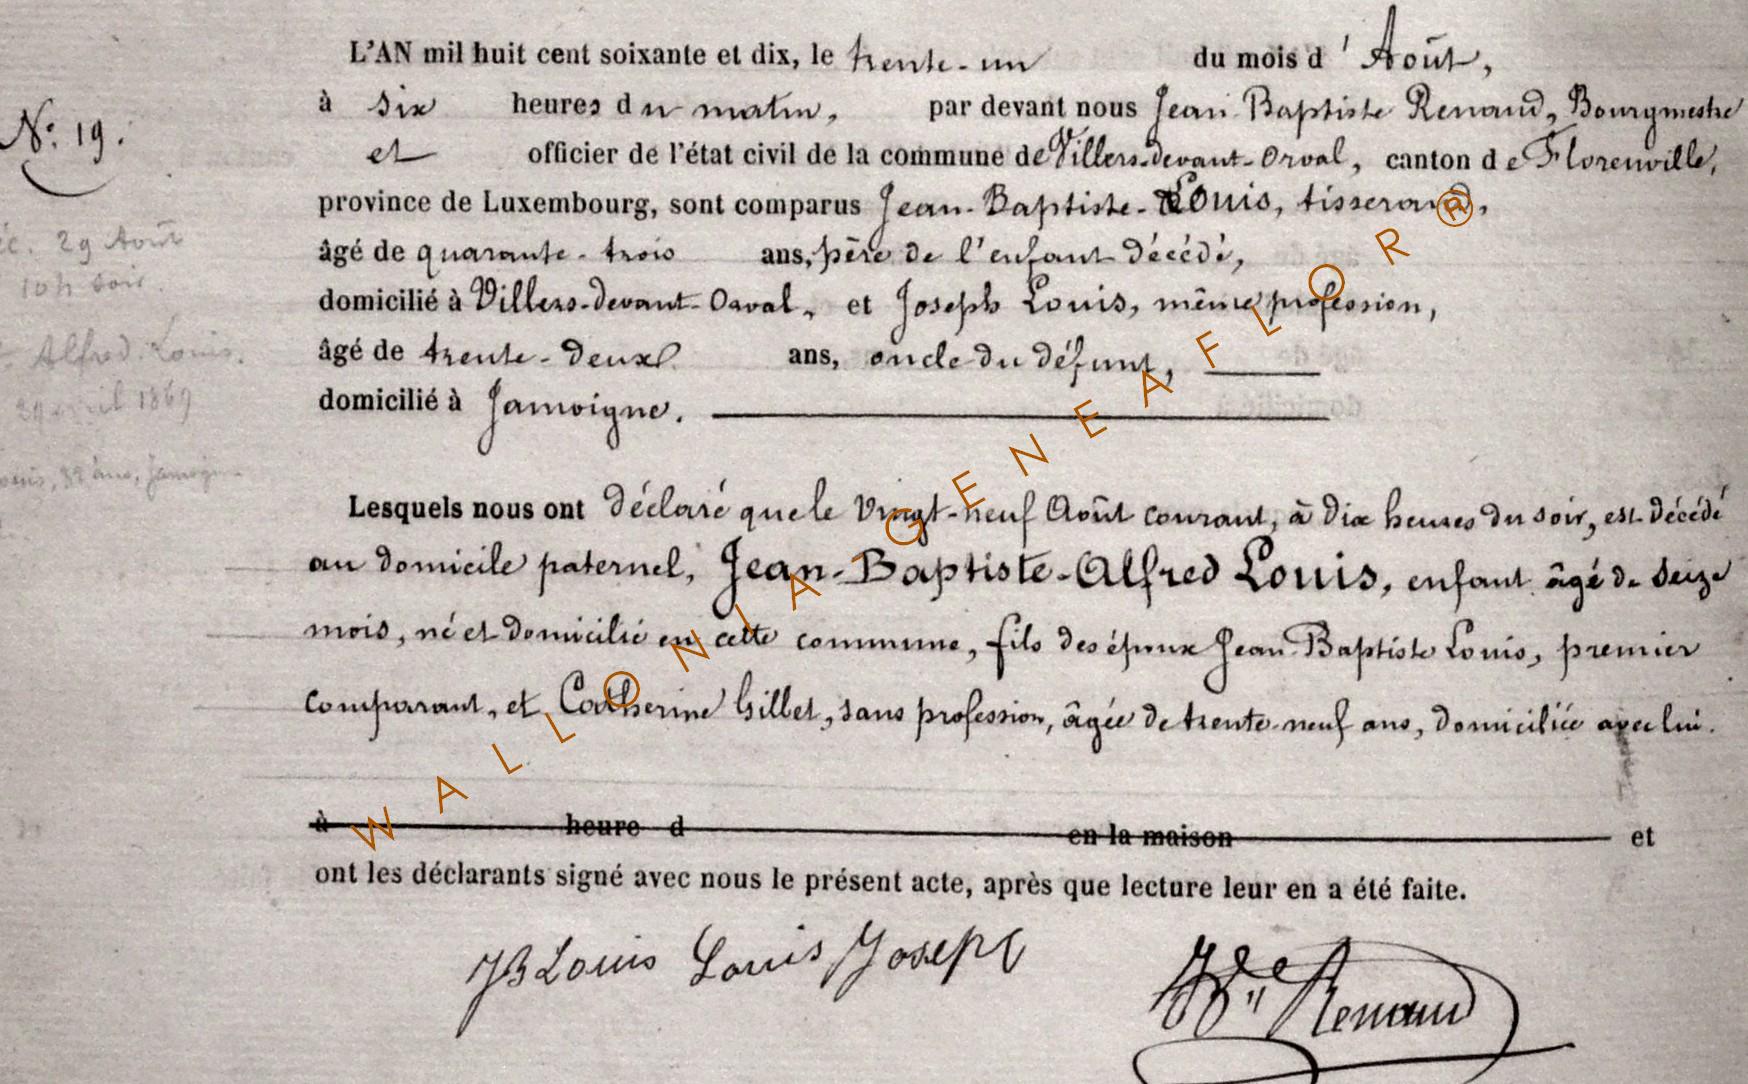 L'AN mil huit cent soixante et dix, le trente-un du mois d'Août,
à six heures du matin, par devant nous Jean Baptiste Renaud, Bourgmestre
N° 19.
et officier de l'état civil de la commune de Villers-devant-Orval, canton de Florenville,
province de Luxembourg, sont comparus Jean-Baptiste-Louis, tisserand,
29 Août
âgé de quarante-trois ans, père de l'enfant décédé,
10h soir.
domicilié à Villers-devant-Orval, et Joseph Louis, même profession,
Alfred Louis.
âgé de trente-deux ans, oncle du défunt,
avril 1869
domicilié à Jamoigne.
32 ans, Jamoigne
Lesquels nous ont déclaré que le vingt-neuf Août courant, à dix heures du soir, est décédé
au domicile paternel, Jean-Baptiste-Alfred Louis, enfant âgé de seize
mois, né et domicilié en cette commune, fils des époux Jean-Baptiste Louis, premier
comparant, et Catherine Gillet, sans profession, âgée de trente-neuf ans, domiciliée avec lui.
à heure d en la maison et
ont les déclarants signé avec nous le présent acte, après que lecture leur en a été faite.
JB Louis Louis Joseph
Renaud
WALLONIA-GENEAFLOR®